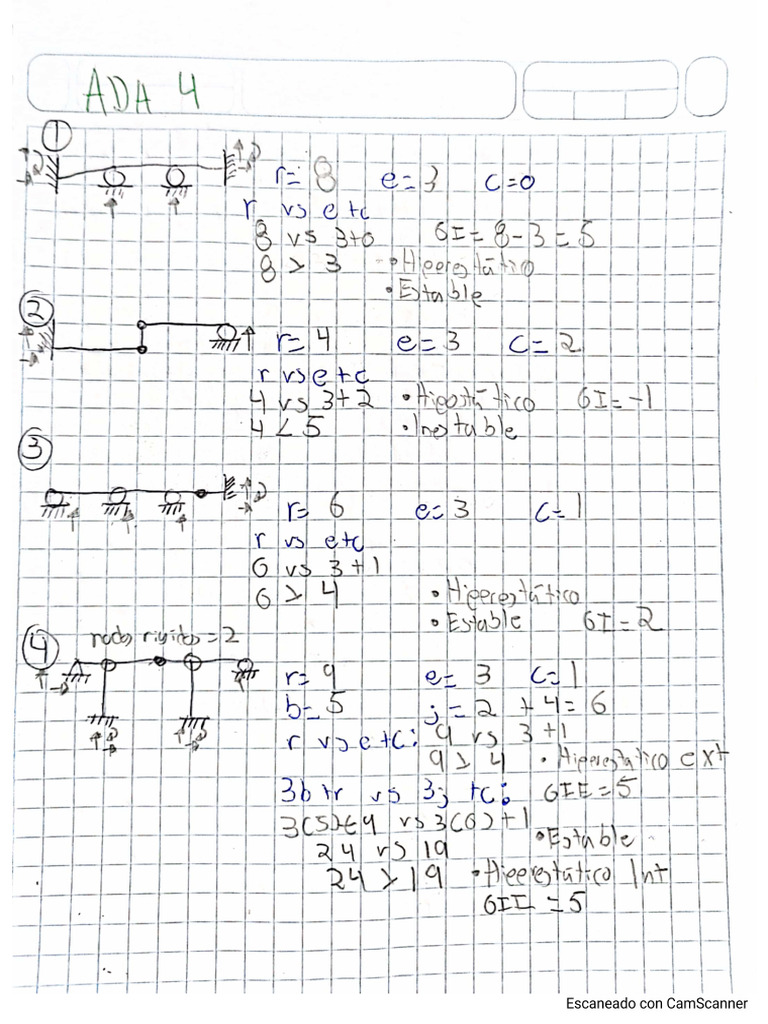 ADA 4
①
r= 8 e=3 c=0
r vs e+c
8 vs 3+0 GI= 8-3=5
8 > 3 •Hiperestático
•Estable
②
r=4 e=3 c=2
r vs e+c
4 vs 3+2 •Hipostático GI=-1
4 < 5 •Inestable
③
r= 6 e=3 c=1
r vs e+c
6 vs 3+1
6 > 4 •Hiperestático
•Estable GI=2
④ nodos rigidos=2
r=9 e= 3 c=1
b=5 j=2 +4=6
r vs e+c: 9 vs 3+1
9>4 •Hiperestatico ext
3b+r vs 3j+c: GIE=5
3(5)+9 vs 3(6)+1
•Estable
24 vs 19
24 > 19 •Hiperestático Int
GII =5
Escaneado con CamScanner